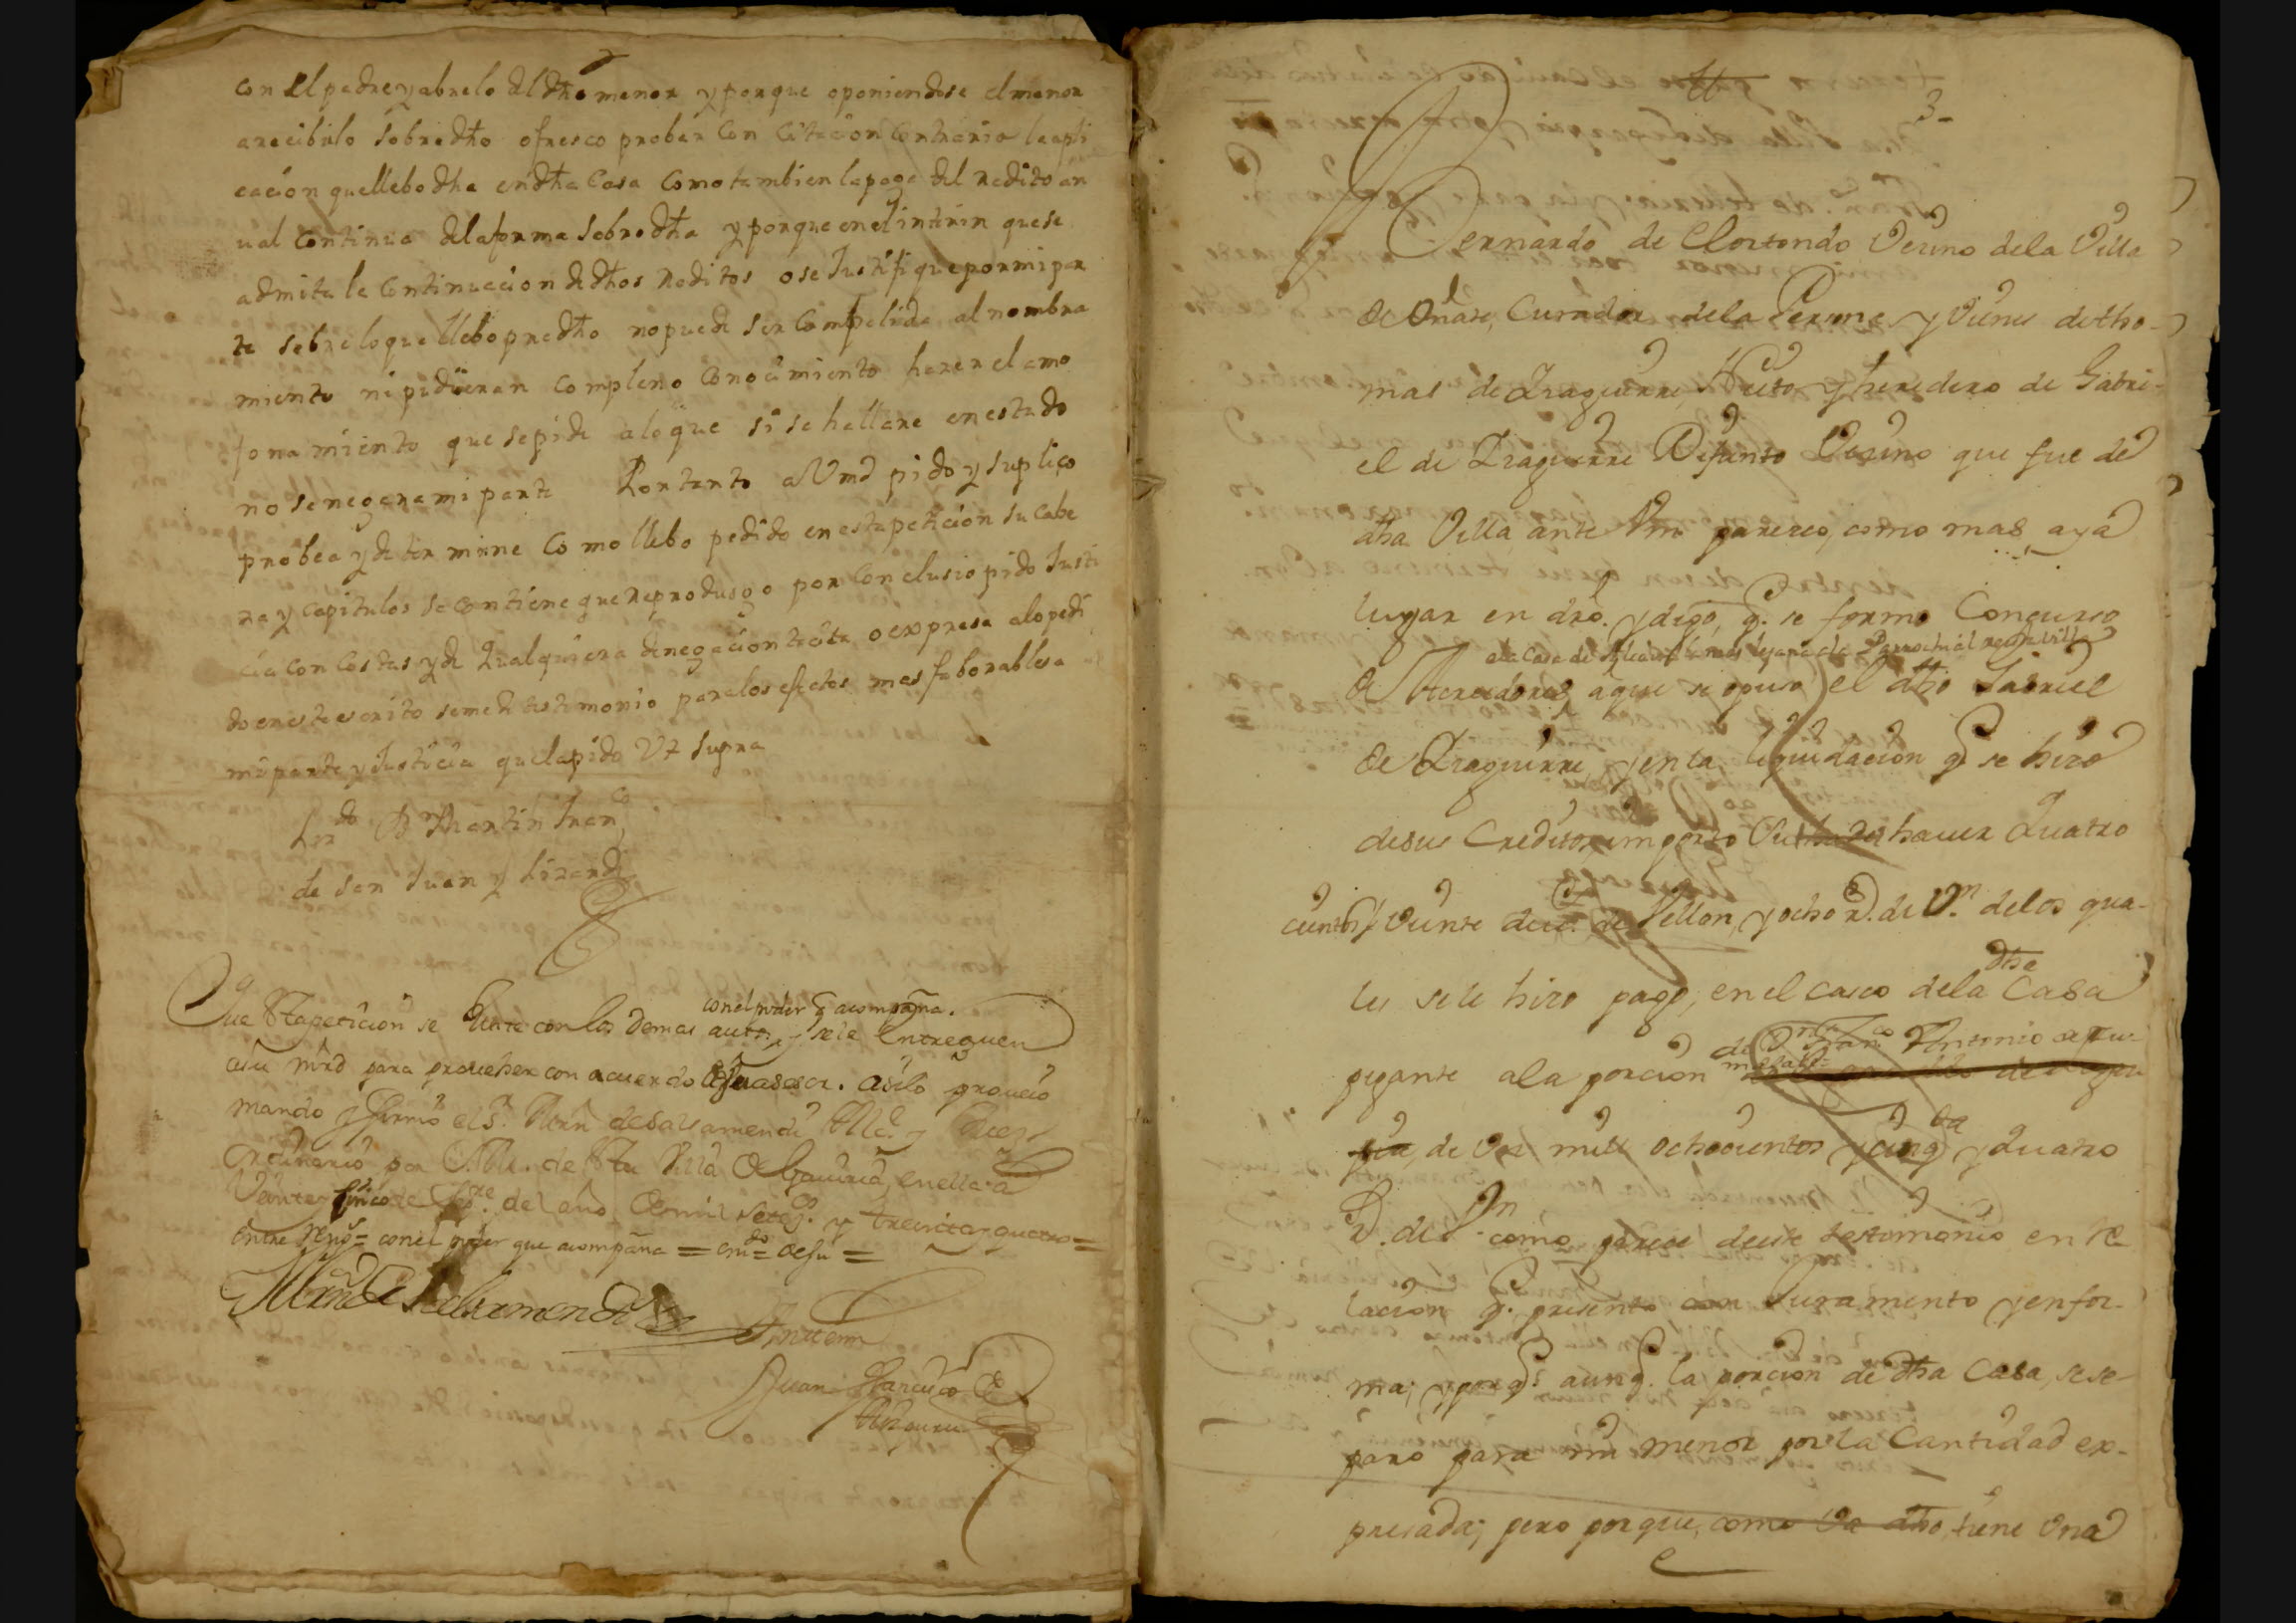 con el padre y abuelo del dho menor y porque oponiendose el menor
arecibirlo sobredho ofresco probar con citacion contraria la apli
cacion que llebo dha en dha Casa como tambien la paga del redito an
ual continua de la forma sobredha y porque en el interin que se
admita la continuacion de dhos reditos o se Justifique por mi par
te sobre lo que llebo predho no puede ser compelida al nombra
miento ni pidieran con pleno conocimiento hazer el amo
jonamiento que se pide a lo que si se hallare en estado
no se negara mi parte Por tanto a Vmd pido y suplico
probea y determine como llebo pedido en esta peticion su cabe
za y capitulos se contiene que reprodusgo por conclusio pido Justi
cia con costas y de qualquiera denegacion tacita o expresa a lo pedi
do en este escrito se me de testimonio para los efectos mas faborables a
mi parte y Justicia que la pido Ut supra
Lizdo Dn Martin Franco
de San Juan y Lizardi
con el poder q acompaña.
Que Sta peticion se Junte con los demas autos, y se le entreguen
a su mrd para proveher con acuerdo de su asesor. asi lo proveio
mando y firmo el Sr. Marn de Salsamendi Allde. y Juez
ordinario por S.M. de Sta Villa de Gaviria, en ella a
Veinte y cinco de Sepre. del año de mil setezos. y treinta y quatro =
Entre Rengs = con el poder que acompaña = emdo = de su =
Marn de Salsamendi
Ante mi
Juan Franco de
3-
Bernardo de Elortondo Vecino de la Villa
de Oñate, Curador de la Persona, y Vienes de tho-
mas de Yzaguirre, Nieto, y heredero de Gabri-
el de Yzaguirre Defunto Vecino que fue de
dha Villa, ante Vm parezco, como mas aya
lugar en dro. y digo, q. se formo Concurso
a la Casa de la Parrochial de esta Villa
de Acreedores a que se opuso el dho Gabriel
de Yzaguirre, y en la liquidacion q se hizo
de sus Creditos, importo Su hauer Quatro
cientos y veinte duc.s de Vellon, y ocho R. de Vn. de los qua-
dha
les se le hizo pago, en el casco de la Casa
de Dn Franco Antonio de
pegante a la porcion
de Vn mill ochocientos y cinqta y Quatro
R. de Vn como parece de este testimonio en re-
lacion q. presento con Juramento y en for-
ma; y porq. aunq. la porcion de dha Casa, se se-
paro para mi menor por la Cantidad ex-
presada; pero porque, como va dho, tiene Vna